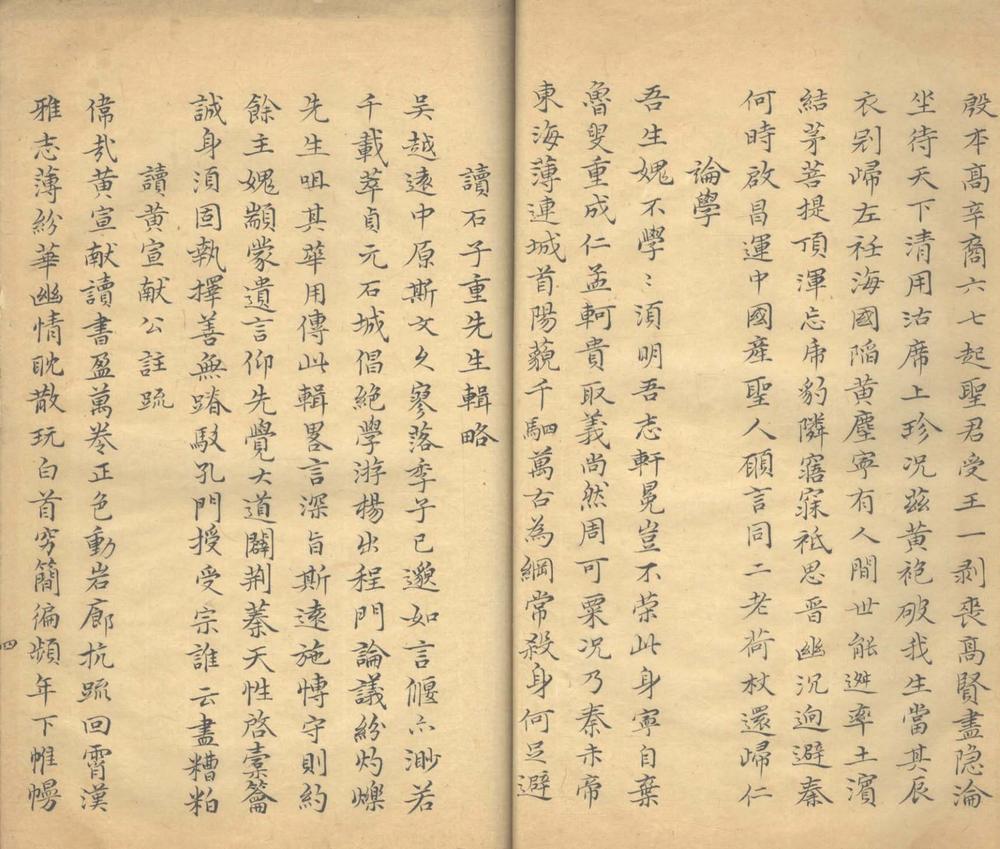 殷本高辛裔六七起聖君受王一剥喪高賢盡隐淪
坐待天下清用沽席上珍况兹黄袍破我生當其辰
衣剜歸左衽海國陷黄塵寧有人間世能逃率土濱
結茅菩提頂渾忘席豹隣寤寐祗思晋幽沉逈避秦
何時啟昌運中國產聖人願言同二老荷杖還歸仁
論學
吾生媿不學〻須明吾志軒冕豈不荣此身寧自棄
魯叟重成仁孟軻貴取義尚然周可粟况乃秦未帝
東海薄連城首陽藐千駟萬古為綱常殺身何足避
讀石子重先生輯略
吴越遠中原斯文久寥落季子已邈如言偃亦渺若
千載萃貞元石城倡絶學游楊出程門論議紛灼爍
先生咀其華用傳此輯畧言深旨斯遠施愽守則約
餘主媿顓蒙遺言仰先覺大道闢荆蓁天性啓橐籥
誠身湏固執擇善無踳駁孔門授受宗誰云盡糟粕
讀黄宣献公註疏
偉㢤黄宣献讀書盈萬卷正色動岩廊抗疏回霄漢
雅志薄紛華幽情耽散玩白首穷簡編頻年下帷幔
四